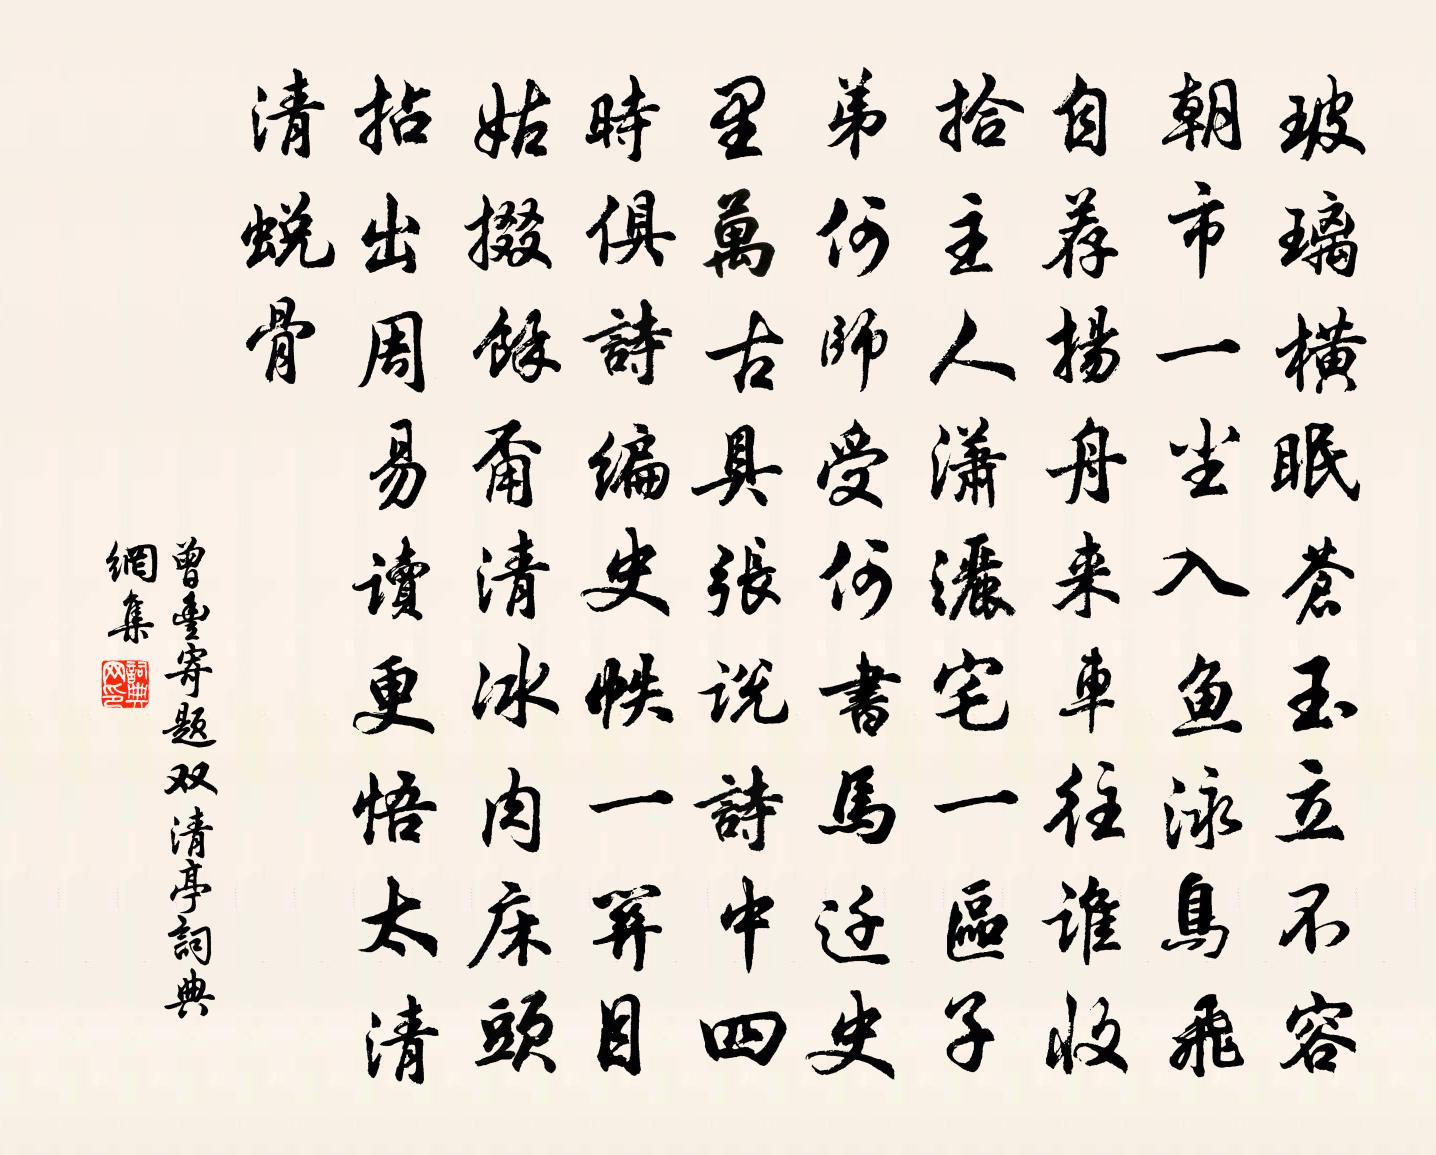 玻璃橫眠蒼玉立不容
朝市一尘入鱼泳鳥飛
自荐揚舟来車往誰收
拾主人瀟灑宅一區子
弟何師受何書馬迁史
里萬古具張説詩中四
時俱詩編史帙一笄目
姑掇餘甭清冰肉床頭
拈出周易读更悟太清
清蜕骨
曾豊寄题双清亭詞典
網集
詞典网印